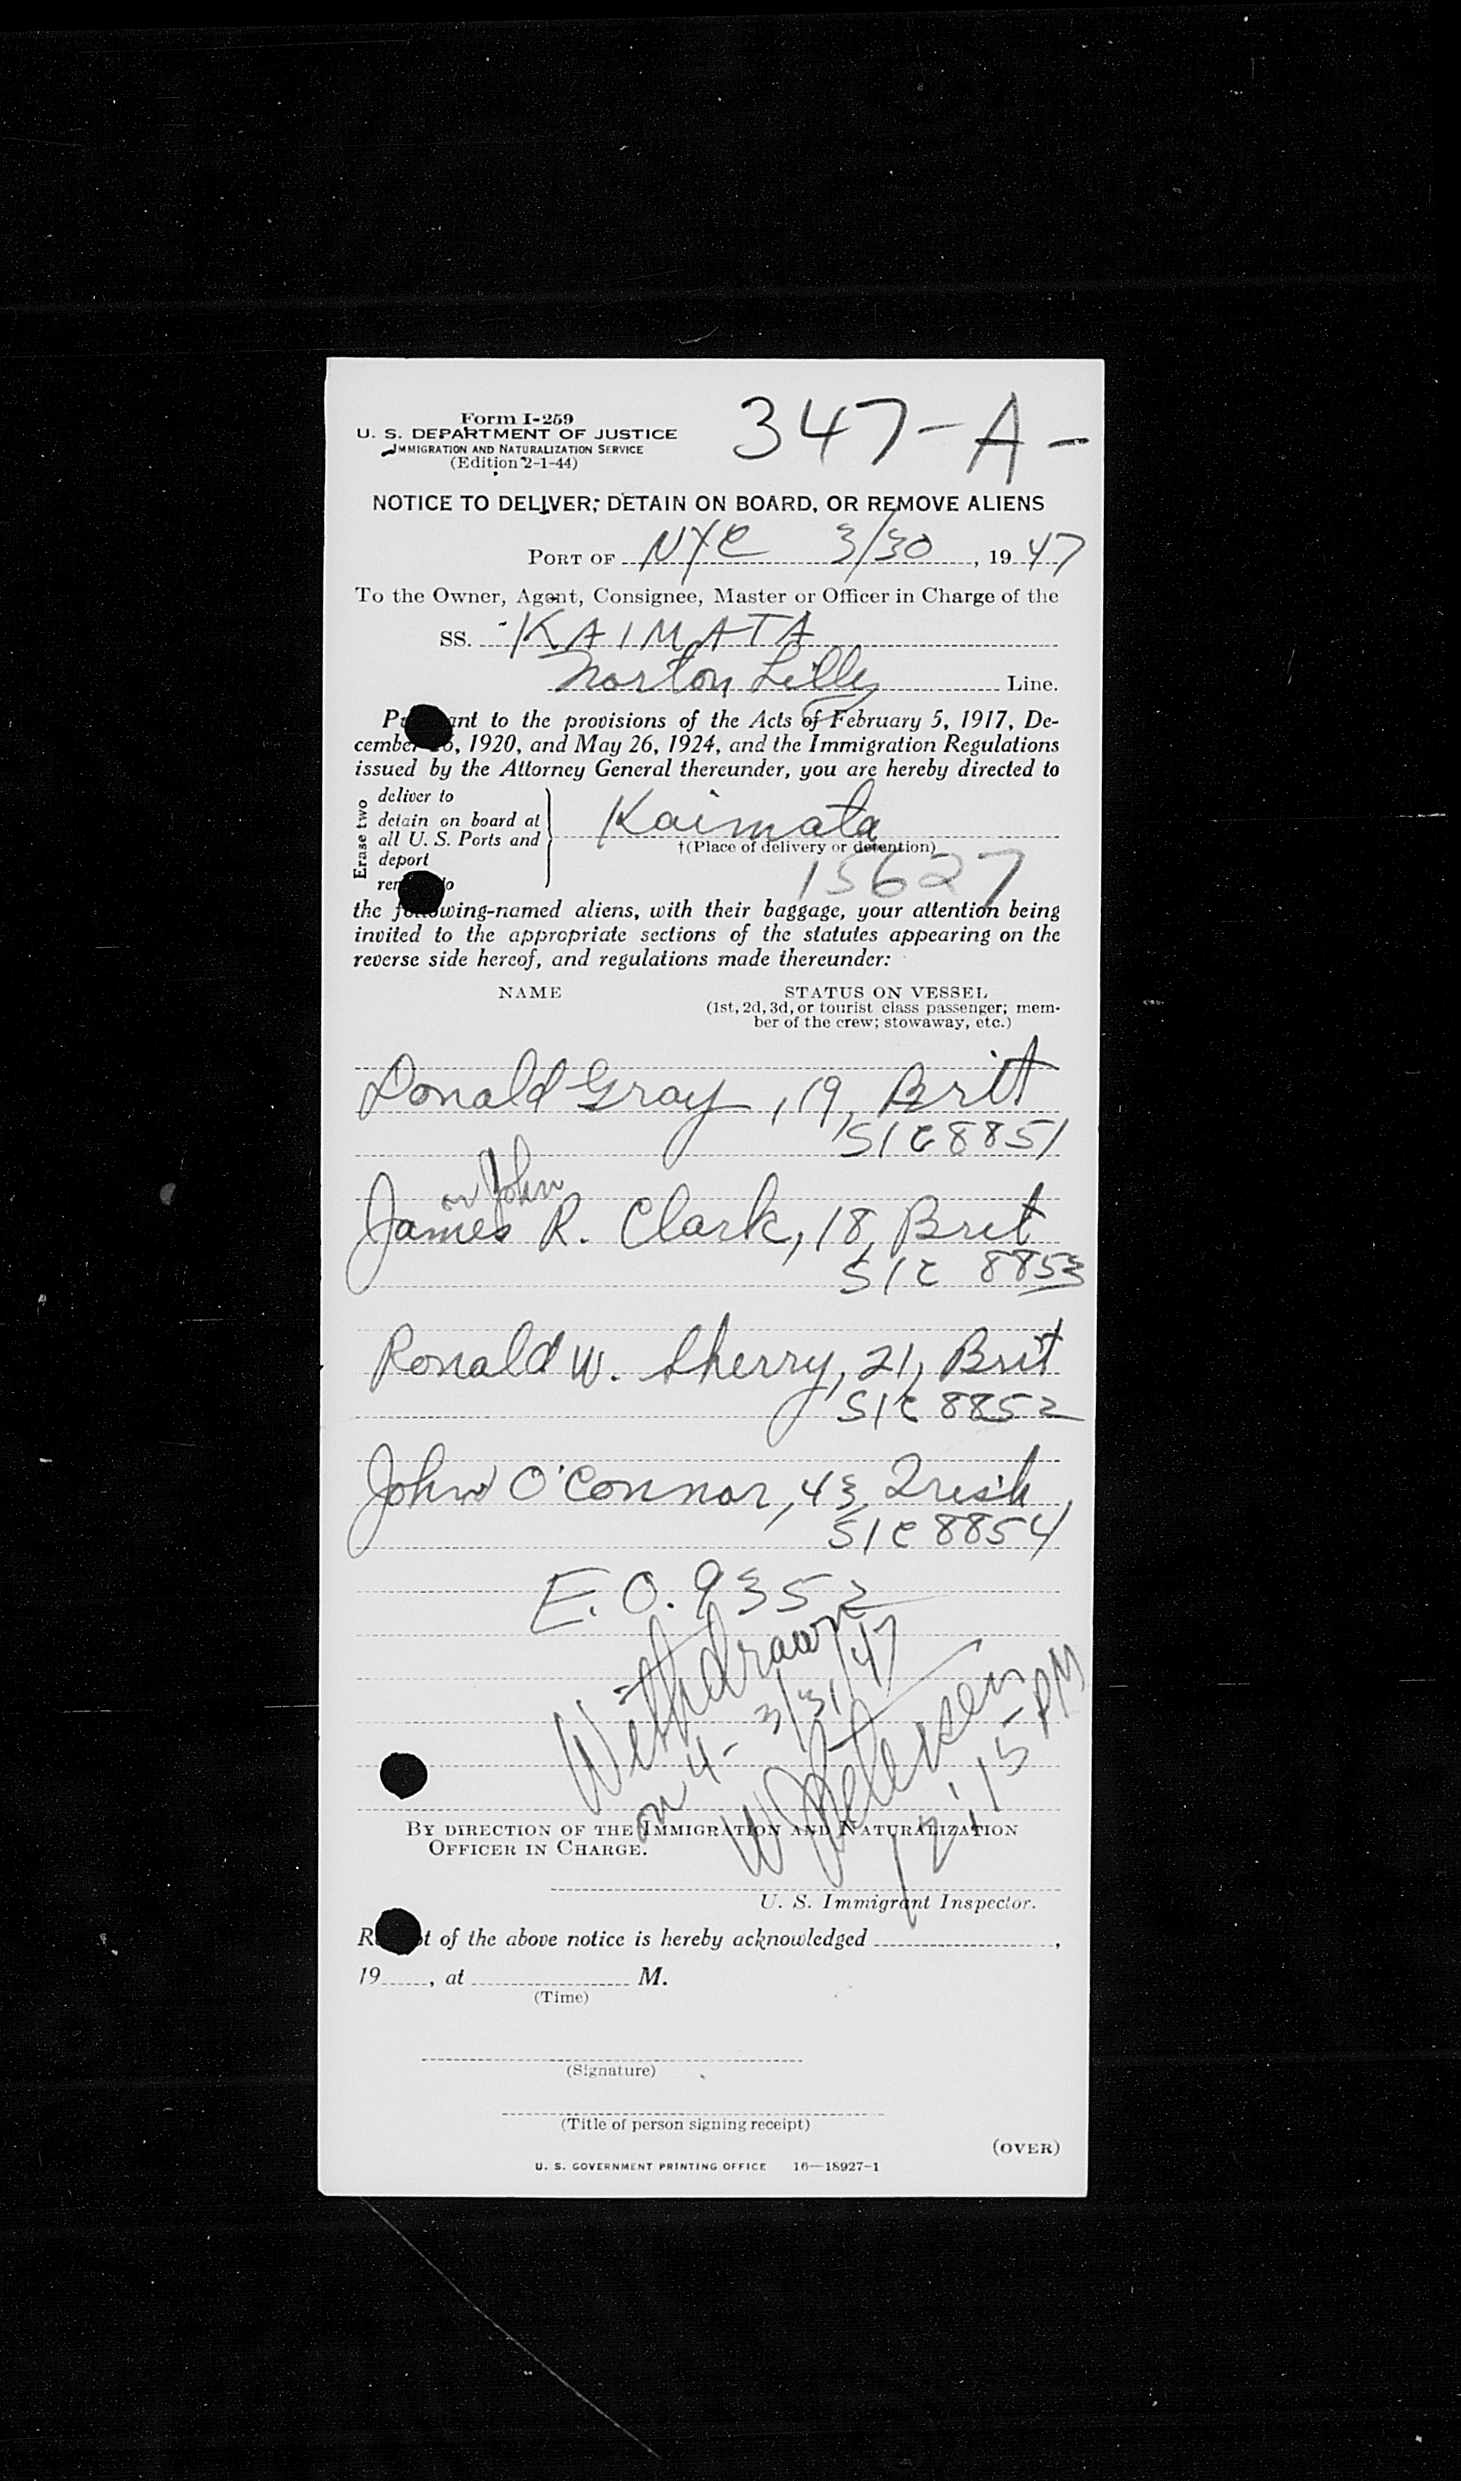 347-A-
Form I-259
U. S. DEPARTMENT OF JUSTICE
IMMIGRATION AND NATURALIZATION SERVICE
(Edition 2-1-44)
NOTICE TO DELIVER, DETAIN ON BOARD, OR REMOVE ALIENS
PORT OF NYC 3/30, 1947
To the Owner, Agent, Consignee, Master or Officer in Charge of the
SS. KAIMATA
Norton Lilly Line.
ant to the provisions of the Acts of February 5, 1917, De-
cember 6, 1920, and May 26, 1924, and the Immigration Regulations
issued by the Attorney General thereunder, you are hereby directed to
Erase two
deliver to
detain on board at
all U. S. Ports and
deport
Kaimata
†(Place of delivery or detention)
15627
the following-named aliens, with their baggage, your attention being
invited to the appropriate sections of the statutes appearing on the
reverse side hereof, and regulations made thereunder:
NAME STATUS ON VESSEL
(1st, 2d, 3d, or tourist class passenger; mem-
ber of the crew; stowaway, etc.)
Donald Gray, 19, Brit
S/C 8851
or John
James R. Clark, 18, Brit
S/C 8853
Ronald W. Sherry, 21, Brit
S/C 8852
John O'Connor, 43, Irish,
S/C 8854
E.O. 9352
Withdrawn
on 4- 3/31/47
W Petersen
2:15 PM
BY DIRECTION OF THE IMMIGRATION AND NATURALIZATION
OFFICER IN CHARGE.
U. S. Immigrant Inspector.
t of the above notice is hereby acknowledged ,
19 , at M.
(Time)
(Signature)
(Title of person signing receipt)
(OVER)
U. S. GOVERNMENT PRINTING OFFICE 16—18927-1